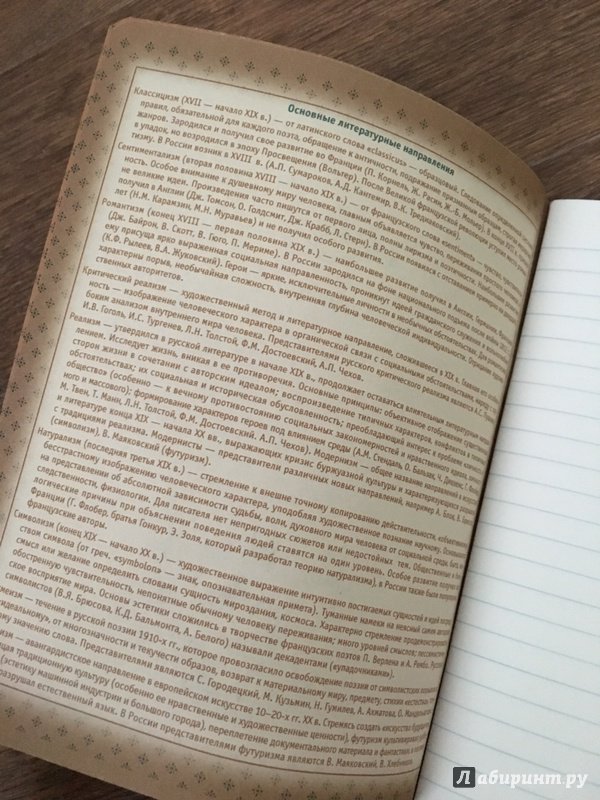 Основные литературные направления
Классицизм (XVII — начало XIX в.) — от латинского слова «classicus» — образцовый. Следование определённым
правил, обязательной для каждого поэта, обращение к античности, подражание признанным образцам, строгое
жанров. Зародился и получил своё развитие во Франции (П. Корнель, Ж. Расин, Ж.-Б. Мольер).
в упадок, но возродился в эпоху Просвещения (Вольтер). После Великой французской революции
тизму. В России возник в XVIII в. (А.П. Сумароков, А.Д. Кантемир, В.К. Тредиаковский).
Сентиментализм (вторая половина XVIII — начало XIX в.) — от французского слова
ность. Особое внимание к душевному миру человека, главным объявляется чувство, переживание простого
не великие идеи. Произведения часто пишутся от первого лица, полны лиризма и поэтичности.
получил в Англии (Дж. Томсон, О. Голдсмит, Дж. Крабб, Л. Стерн). В России появился с
лет (Н.М. Карамзин, М.Н. Муравьев) и не получил особого развития.
Романтизм (конец XVIII — первая половина XIX в.) — наиболее развитие получил в Англии, Германии,
(Дж. Байрон, В. Скотт, В. Гюго, П. Мериме). В России зародился на фоне национального подъёма после
ему присуща ярко выраженная социальная направленность, проникнут идеей гражданского служения и
(К.Ф. Рылеев, В.А. Жуковский). Герои — яркие, исключительные личности в необычных обстоятельствах. Для
характерны порыв, необычайная сложность, внутренняя глубина человеческой индивидуальности. Отрицание
ственных авторитетов.
Критический реализм — художественный метод и литературное направление, сложившееся в XIX в. Главная его
ность — изображение человеческого характера в органической связи с социальными обстоятельствами, наряду с
боким анализом внутреннего мира человека. Представителями русского критического реализма являются А.С.
Н.В. Гоголь, И.С. Тургенев, Л.Н. Толстой, Ф.М. Достоевский, А.П. Чехов.
Реализм — утвердился в русской литературе в начале XIX в., продолжает оставаться влиятельным литературным
лением. Исследует жизнь, вникая в ее противоречия. Основные принципы: объективное отображение
сторон жизни в сочетании с авторским идеалом; воспроизведение типичных характеров, конфликтов в
обстоятельствах; их социальная и историческая обусловленность; преобладающий интерес к проблеме
общество» (особенно — к вечному противостоянию социальных закономерностей и нравственного идеала,
ного и массового); формирование характеров героев под влиянием среды (А.М. Стендаль, О. Бальзак, Ч. Диккенс, Г.
М. Твен, Т. Манн, Л.Н. Толстой, Ф.М. Достоевский, А.П. Чехов). Модернизм — общее название направлений в
и литературе конца XIX — начала XX вв., выражающих кризис буржуазной культуры и характеризующихся
с традициями реализма. Модернисты — представители различных новых направлений, например А. Блок, В.
(символизм), В. Маяковский (футуризм).
Натурализм (последняя треть XIX в.) — стремление к внешне точному копированию действительности, «объективному»
бесстрастному изображению человеческого характера, уподобляя художественное познание научному.
на представлении об абсолютной зависимости судьбы, воли, духовного мира человека от социальной среды,
ледственности, физиологии. Для писателя нет непригодных сюжетов или недостойных тем. Общественные и
логические причины при объяснении поведения людей ставятся на один уровень. Особое развитие получил
Франции (Г. Флобер, братья Гонкур, Э. Золя, который разработал теорию натурализма), в России также были
французские авторы.
Символизм (конец XIX — начало XX в.) — художественное выражение интуитивно постигаемых сущностей и идей
ством символа (от греч. «symbolon» — знак, опознавательная примета). Туманные намеки на неясный самим авторам
смысл или желание определить словами сущность мироздания, космоса. Характерно стремление
обостренную чувствительность, непонятные обычному человеку переживания; много уровней смыслов;
ское восприятие мира. Основы эстетики сложились в творчестве французских поэтов П. Верлена и А. Рембо.
символистов (В.Я. Брюсова, К.Д. Бальмонта, А. Белого) называли декадентами («упадочниками»).
— течение в русской поэзии 1910-х гг., которое провозгласило освобождение поэзии от символистских
идеальному», от многозначности и текучести образов, возврат к материальному миру, предмету, стихии
му значению слова. Представителями являются С. Городецкий, М. Кузьмин, Н. Гумилев, А. Ахматова, О.
— авангардистское направление в европейском искусстве 10—20-х гг. XX в. Стремясь создать «искусство
традиционную культуру (особенно ее нравственные и художественные ценности), футуризм культивировал
(эстетику машинной индустрии и большого города), переплетение документального материала и фантастики,
разрушал естественный язык. В России представителями футуризма являются В. Маяковский, В. Хлебников
Лабиринт.ру